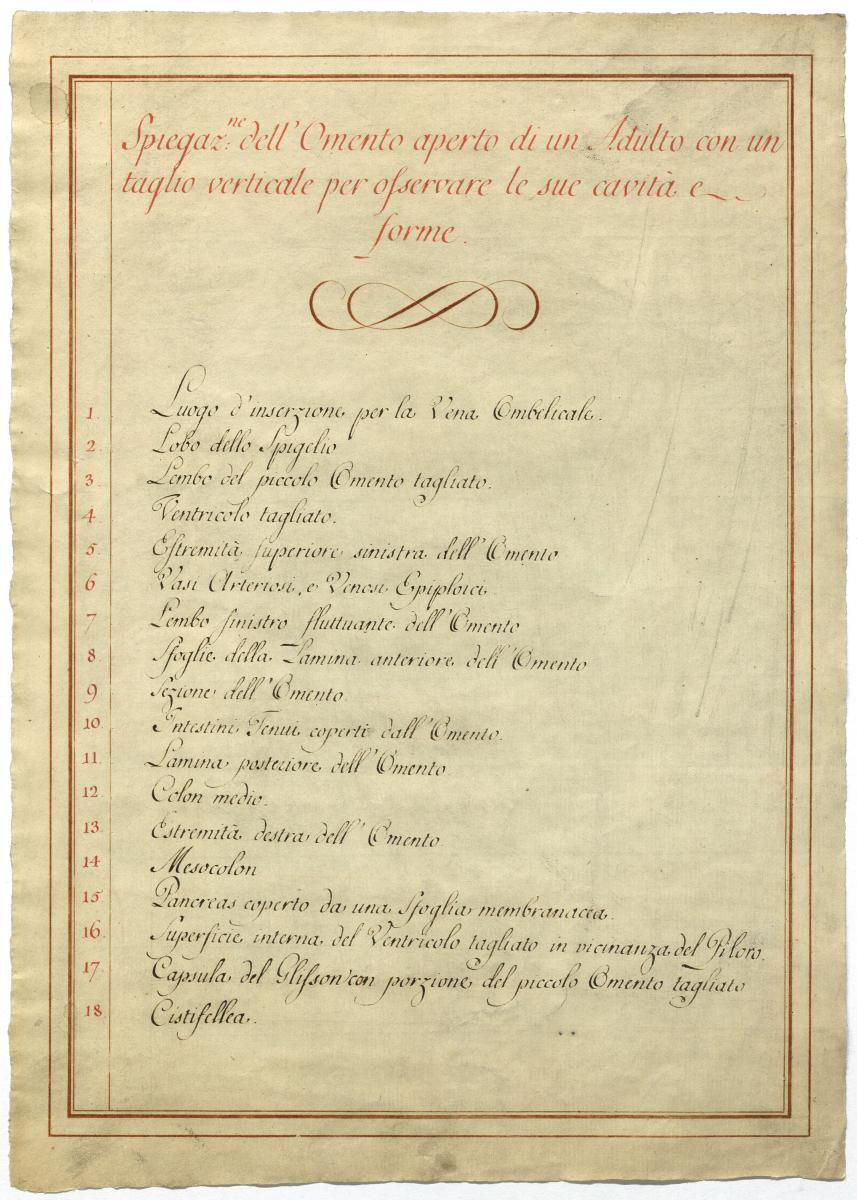 Spiegaz:ne dell'Omento aperto di un Adulto con un
taglio verticale per oſservare le sue cavità e
forme.
1. Luogo d'inserzione per la Vena Ombelicale.
2. Lobo dello Spigelio
3. Lembo del piccolo Omento tagliato.
4. Ventricolo tagliato.
5. Eſtremità superiore sinistra dell'Omento
6. Vasi Arteriosi, e Venosi Epiploici
7. Lembo sinistro fluttuante dell'Omento
8. Sfoglie della Lamina anteriore dell'Omento
9. Sezione dell'Omento
10. Intestini Tenui coperti dall'Omento.
11. Lamina posteriore dell'Omento
12. Colon medio.
13. Estremità destra dell'Omento
14. Mesocolon
15. Pancreas coperto da una Sfoglia membranacea.
16. Superficie interna del Ventricolo tagliato in vicinanza del Piloro.
17. Capsula del Gliſson con porzione del piccolo Omento tagliato
18. Cistifellea.